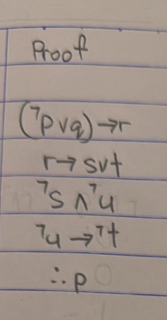 Proof
(¬p∨q)→r
r→s∨t
¬s∧¬u
¬u→¬t
∴p